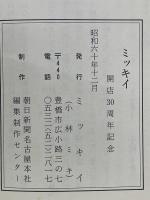 ミッキイ
開店30周年記念
昭和六十年十二月
発行 ミッキイ
(小林ミキ)
〒440
豊橋市広小路三の七
電話 〇五三二(五二)二八一七
制作 朝日新聞名古屋本社
編集制作センター